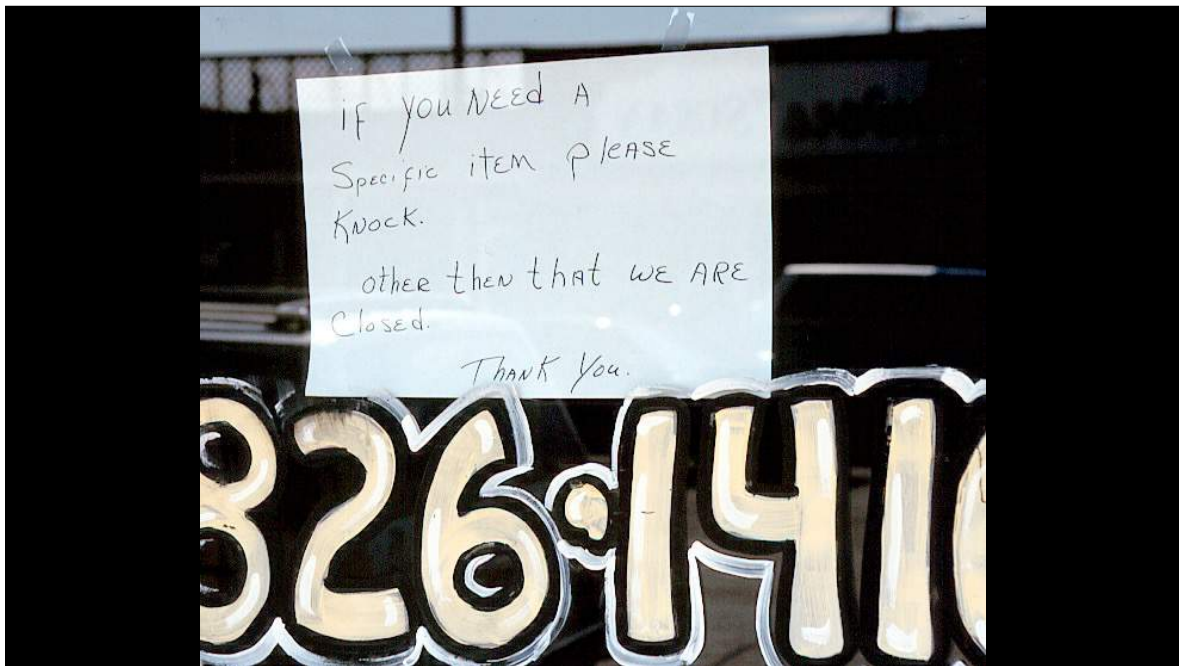 if you NEEd A
Specific itEM plEASE
KNOCK.
othER thEN thAt WE ARE
ClosEd.
THANK YOU.
826•141